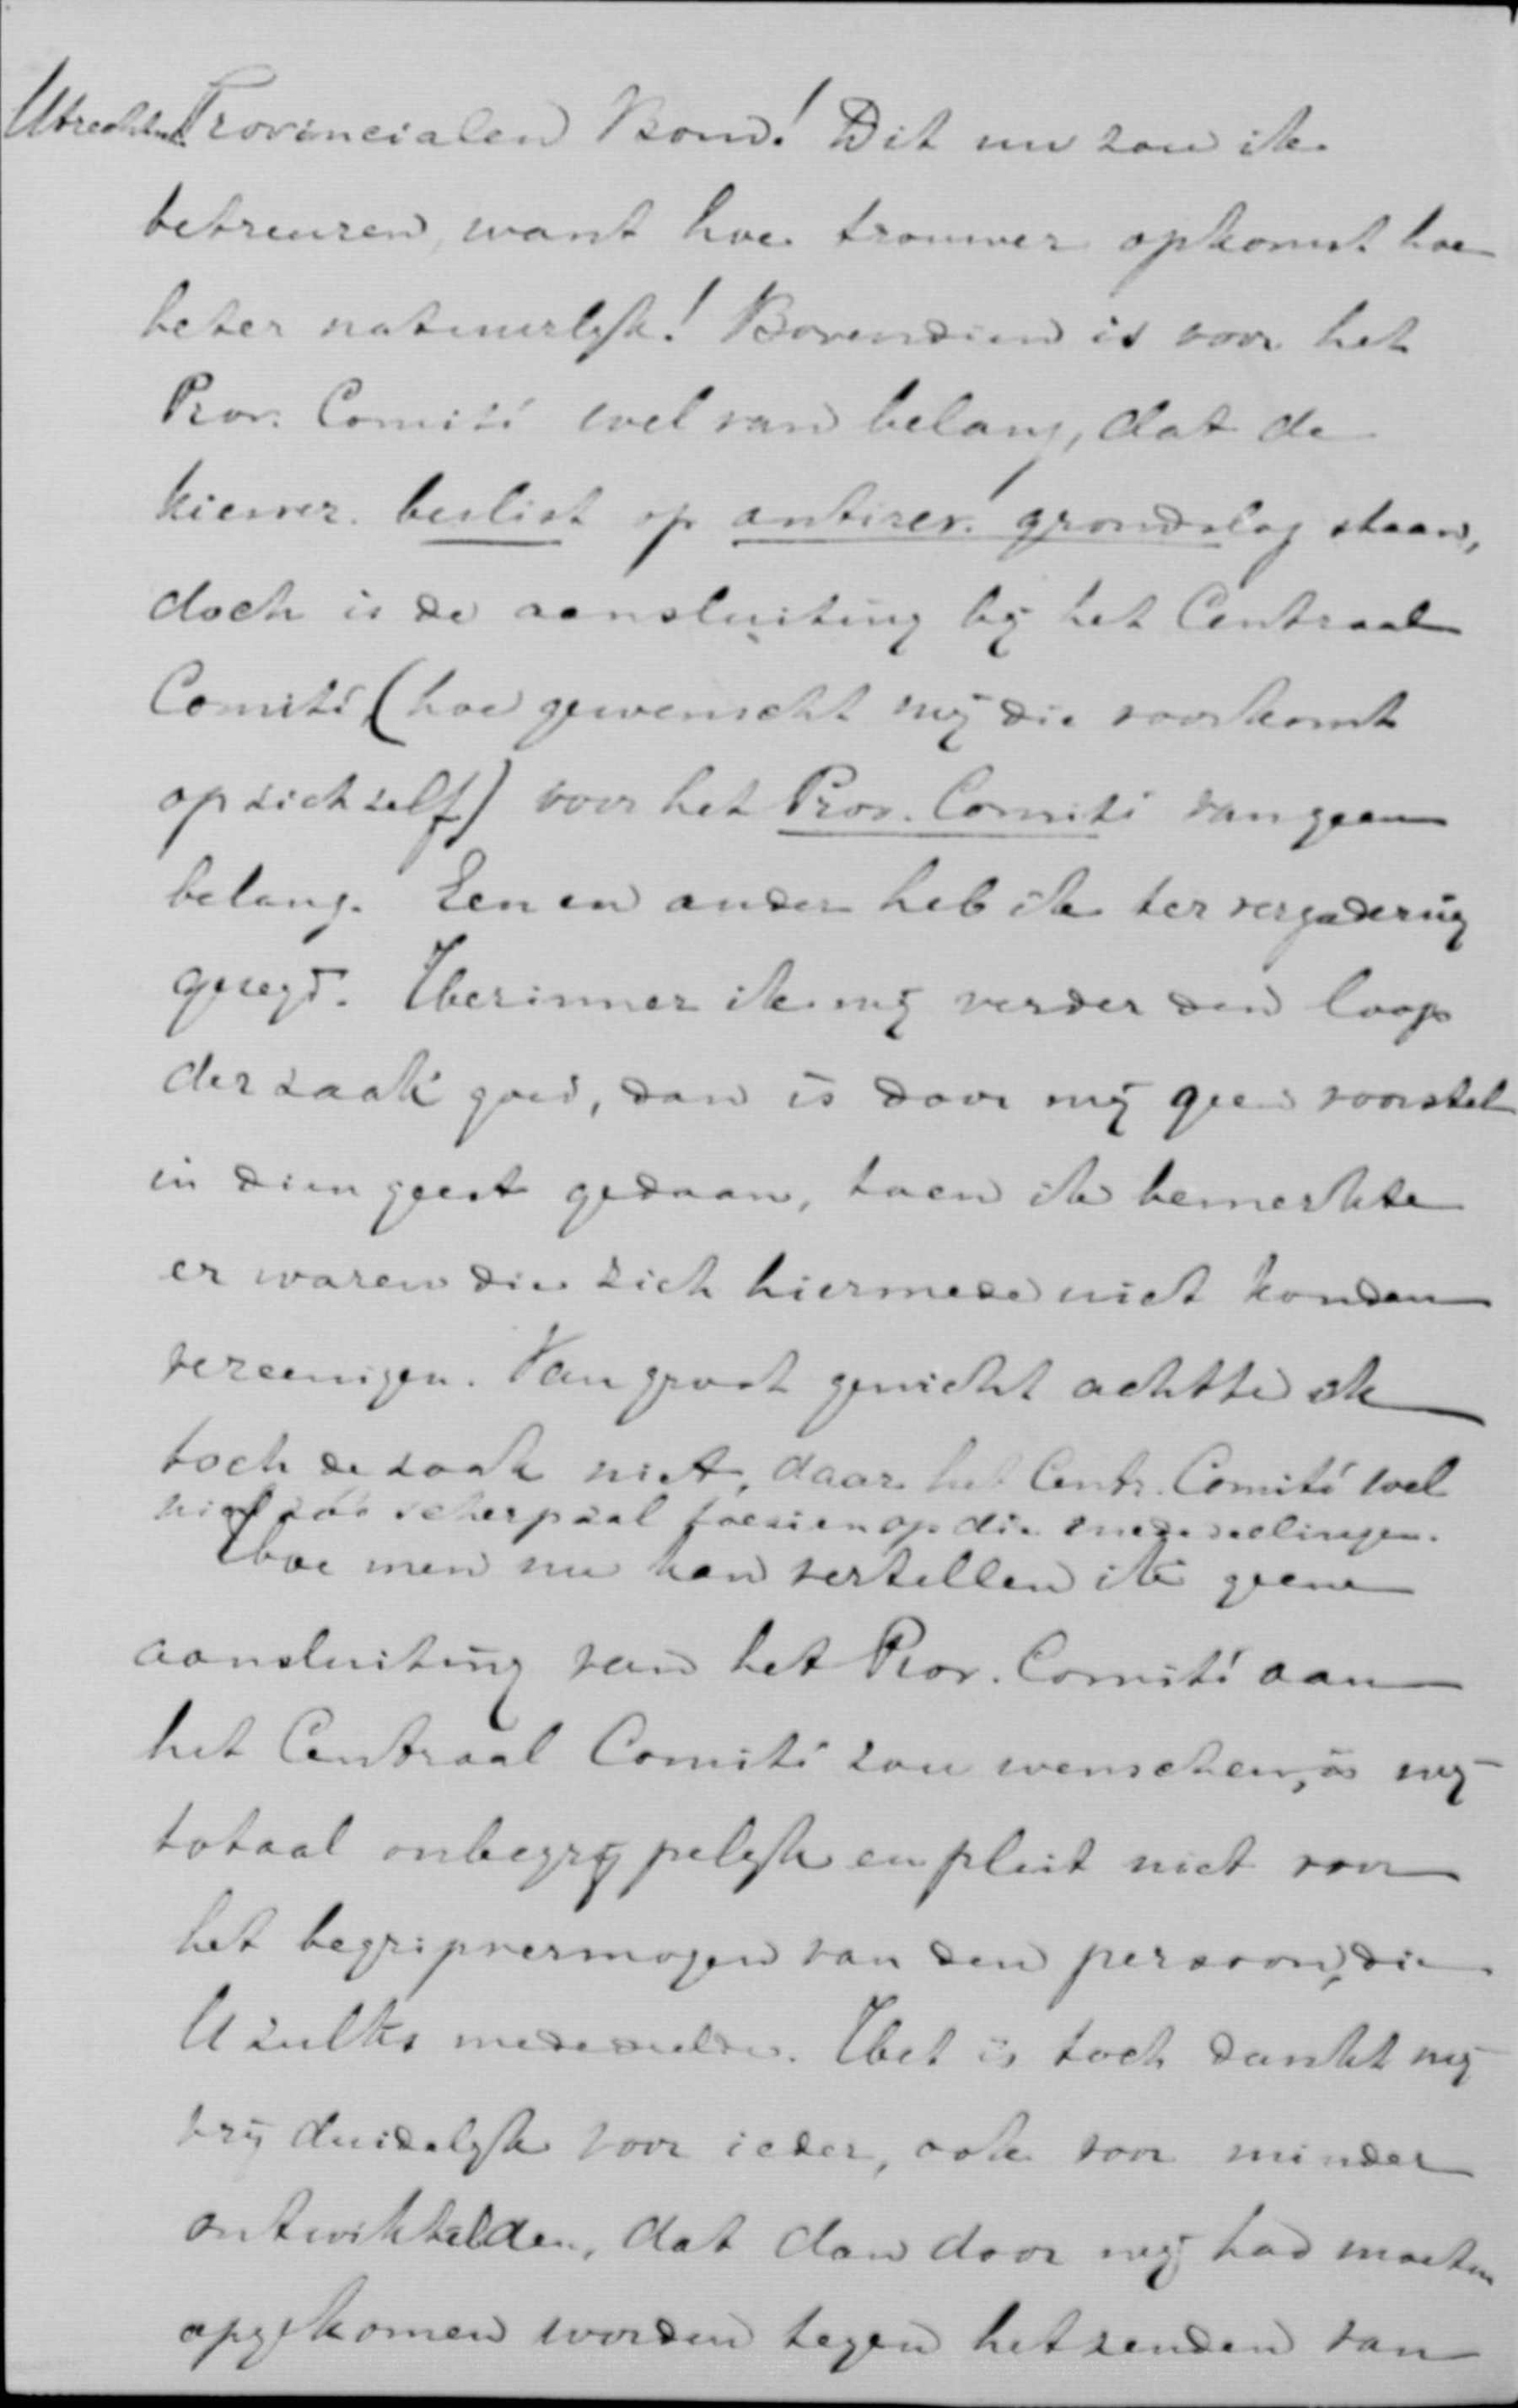 Utrechtsch Provincialen Bond! Dit nu zou ik
betreuren, want hoe trouwer opkomst hoe
beter natuurlijk! Bovendien is voor het
Prov. Comité wel van belang, dat de
kiesver. beslist op antirev. grondslag staan,
doch is de aansluiting bij het Centraal
Comité (hoe gewenscht mij die voorkomt
op zich zelf) voor het Prov. Comité van geen
belang. Een en ander heb ik ter vergadering
gezegd. Herinner ik mij verder den loop
der zaak goed, dan is door mij geen voorstel
in dien geest gedaan, toen ik bemerkte
er waren die zich hiermede niet konden
vereenigen. Van groot gewicht achtte ik
toch de zaak niet, daar het Centr. Comité wel
niet zóó scherp zal toezien op die mededeelingen.
Hoe men nu kan vertellen ik geene
aansluiting van het Prov. Comité aan
het Centraal Comité zou wenschen, is mij
totaal onbegrijpelijk en pleit niet voor
het begripvermogen van den persoon, die
U zulks mededeelde. Het is toch dunkt mij
vrij duidelijk voor ieder, ook voor minder
ontwikkelden, dat dan door mij had moeten
opgekomen worden tegen het zenden van